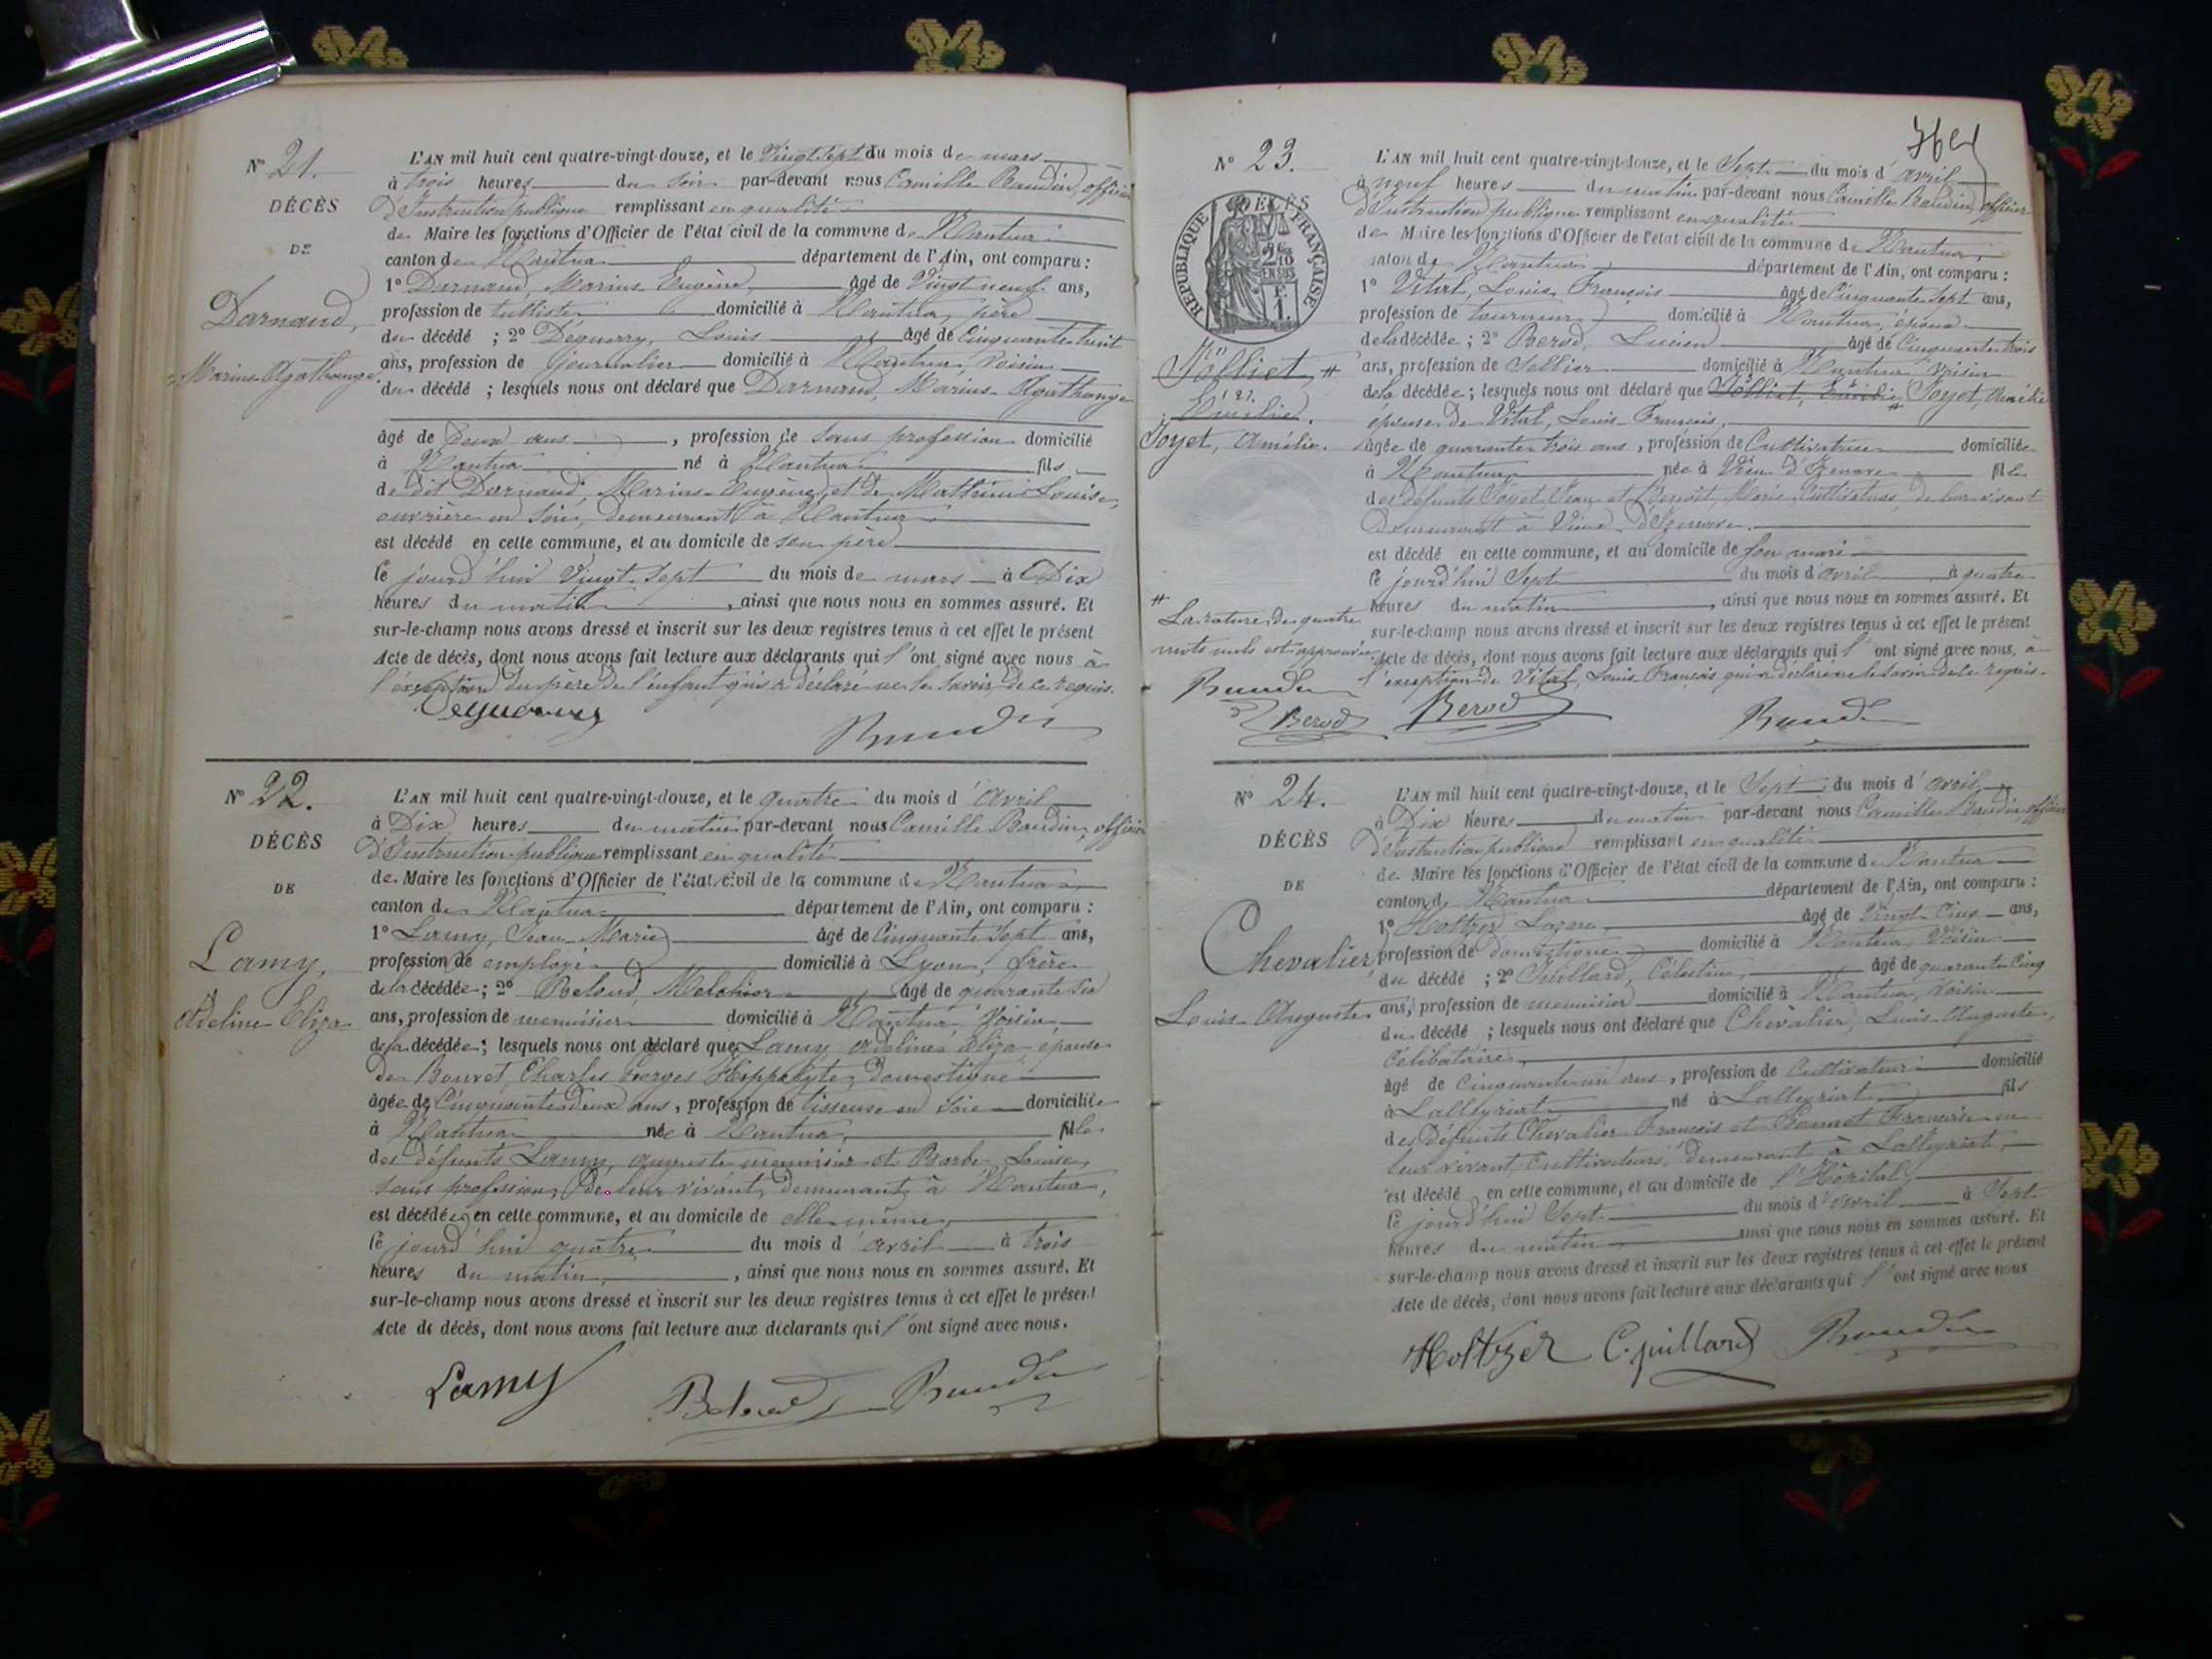 N° 21.
DÉCÈS
DE
Darnaud,
Marius Agathange
L'AN mil huit cent quatre-vingt-douze, et le Vingt Sept du mois de mars
à trois heures du soir par-devant nous Camille Baudin, officier
d'Instruction publique remplissant en qualité
de Maire les fonctions d'Officier de l'état civil de la commune de Nantua
canton de Nantua département de l'Ain, ont comparu :
1° Darnaud, Marius Eugène, âgé de Vingt neuf ans,
profession de tulliste domicilié à Nantua, père
du décédé ; 2° Déguerry, Louis âgé de Cinquante huit
ans, profession de journalier domicilié à Nantua, voisin
du décédé ; lesquels nous ont déclaré que Darnaud, Marius Agathange
âgé de Deux ans , profession de sans profession domicilié
à Nantua né à Nantua fils
de dit Darnaud, Marius Eugène, et de Louise,
ouvrière en soie, demeurant à Nantua
est décédé en cette commune, et au domicile de son père
le jourd'hui Vingt Sept du mois de mars à Dix
heures du matin , ainsi que nous nous en sommes assuré. Et
sur-le-champ nous avons dressé et inscrit sur les deux registres tenus à cet effet le présent
Acte de décès, dont nous avons fait lecture aux déclarants qui l'ont signé avec nous à
l'exception du père de l'enfant qui a déclaré ne le savoir de ce requis.
Deguerry
Baudin
N° 22.
DÉCÈS
DE
Lamy,
Adeline Eliza
L'AN mil huit cent quatre-vingt-douze, et le quatre du mois d'avril
à Dix heures du matin par-devant nous Camille Baudin, officier
d'Instruction publique remplissant en qualité
de Maire les fonctions d'Officier de l'état civil de la commune de Nantua
canton de Nantua département de l'Ain, ont comparu :
1° Lamy, Jean Marie âgé de Cinquante Sept ans,
profession de employé domicilié à Lyon, frère
de la décédée ; 2° Beloud, Melchior âgé de quarante six
ans, profession de menuisier domicilié à Nantua, voisin
de la décédée ; lesquels nous ont déclaré que Lamy Adeline Eliza, épouse
de Bouvet, Charles Georges Hippolyte, domestique
âgée de Cinquante deux ans, profession de tisseuse en soie domiciliée
à Nantua née à Nantua, fille
des défunts Lamy, auguste menuisier et Barbe, Louise,
sans profession, de leur vivant, demeurant à Nantua,
est décédée en cette commune, et au domicile de elle même,
le jourd'hui quatre du mois d'avril à trois
heures du matin, , ainsi que nous nous en sommes assuré. Et
sur-le-champ nous avons dressé et inscrit sur les deux registres tenus à cet effet le présent
Acte de décès, dont nous avons fait lecture aux déclarants qui l'ont signé avec nous.
Lamy
Beloud Baudin
N° 23.
DÉCÈS
RÉPUBLIQUE FRANÇAISE
Jolliet, #
Joyet, Amélie.
L'AN mil huit cent quatre-vingt-douze, et le Sept du mois d'avril
à neuf heures du matin par-devant nous Camille Baudin, officier
d'Instruction publique remplissant en qualité
de Maire les fonctions d'Officier de l'état civil de la commune de Nantua,
canton de Nantua département de l'Ain, ont comparu :
1° Vital, Louis François âgé de Cinquante Sept ans,
profession de tourneur domicilié à Nantua, époux
de la décédée ; 2° Berod, Lucien âgé de Cinquante trois
ans, profession de Sellier domicilié à Nantua voisin
de la décédée ; lesquels nous ont déclaré que Jolliet, Joyet, Amélie
épouse de Vital, Louis François,
âgée de quarante trois ans, profession de Cultivatrice domiciliée
à Nantua née à Vieu d'Izenave fille
des défunts Joyet, Jean et Benoît, Marie, Cultivateurs, de leur vivant
Demeurant à Vieu d'Izenave.
est décédé en cette commune, et au domicile de son mari
le jourd'hui Sept du mois d'avril à quatre
heures du matin , ainsi que nous nous en sommes assuré. Et
sur-le-champ nous avons dressé et inscrit sur les deux registres tenus à cet effet le présent
Acte de décès, dont nous avons fait lecture aux déclarants qui l'ont signé avec nous, à
l'exception de Vital, Louis François qui a déclaré ne le savoir de ce requis.
# La rature des quatre
mots nuls est approuvée
Baudin
Berod Berod Baudin
N° 24.
DÉCÈS
DE
Chevalier
Louis Auguste
L'AN mil huit cent quatre-vingt-douze, et le Sept du mois d'avril
à Dix heures du matin par-devant nous Camille Baudin, officier
d'Instruction publique remplissant en qualité
de Maire les fonctions d'Officier de l'état civil de la commune de Nantua
canton de Nantua département de l'Ain, ont comparu :
1° Holtzer Lazare âgé de Vingt Cinq ans,
profession de domestique domicilié à Nantua, Voisin
du décédé ; 2° Juillard, Célestin, âgé de quarante Cinq
ans, profession de menuisier domicilié à Nantua, voisin
du décédé ; lesquels nous ont déclaré que Chevalier, Louis Auguste,
Célibataire,
âgé de Cinquante un ans, profession de Cultivateur domicilié
à Lalleyriat né à Lalleyriat fils
des défunts Chevalier François et Françoise en
leur vivant, Cultivateurs, demeurant à Lalleyriat,
est décédé en cette commune, et au domicile de l'Hôpital,
le jourd'hui Sept du mois d'avril à Sept
heures du matin ainsi que nous nous en sommes assuré. Et
sur-le-champ nous avons dressé et inscrit sur les deux registres tenus à cet effet le présent
Acte de décès, dont nous avons fait lecture aux déclarants qui l'ont signé avec nous
Holtzer C. Juillard Baudin